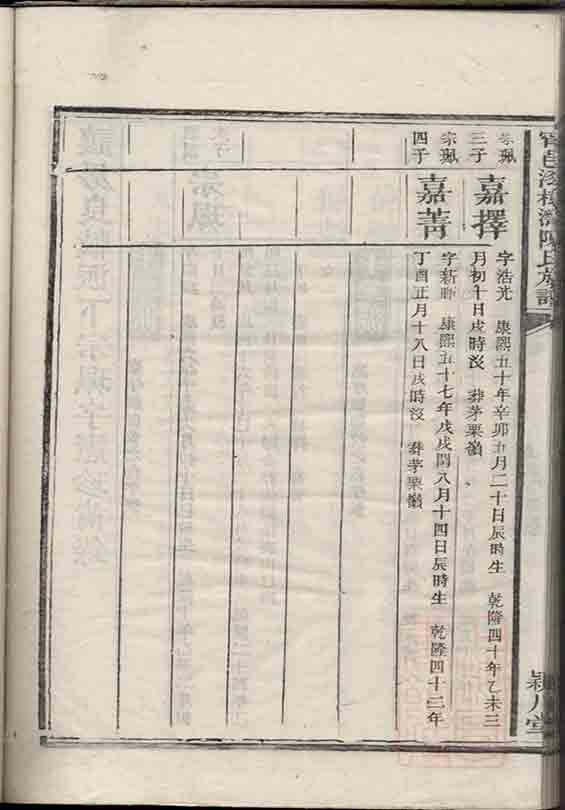 陳氏族譜
宗珮三子
嘉擇
字浩光 康熙五十年辛卯五月二十日辰時生 乾隆四十年乙未三
月初十日戌時沒 葬茅栗嶺
宗珮四子
嘉菁
字新 康熙五十七年戊戌閏八月十四日辰時生 乾隆四十二年
丁酉正月十八日戌時沒 葬茅栗嶺